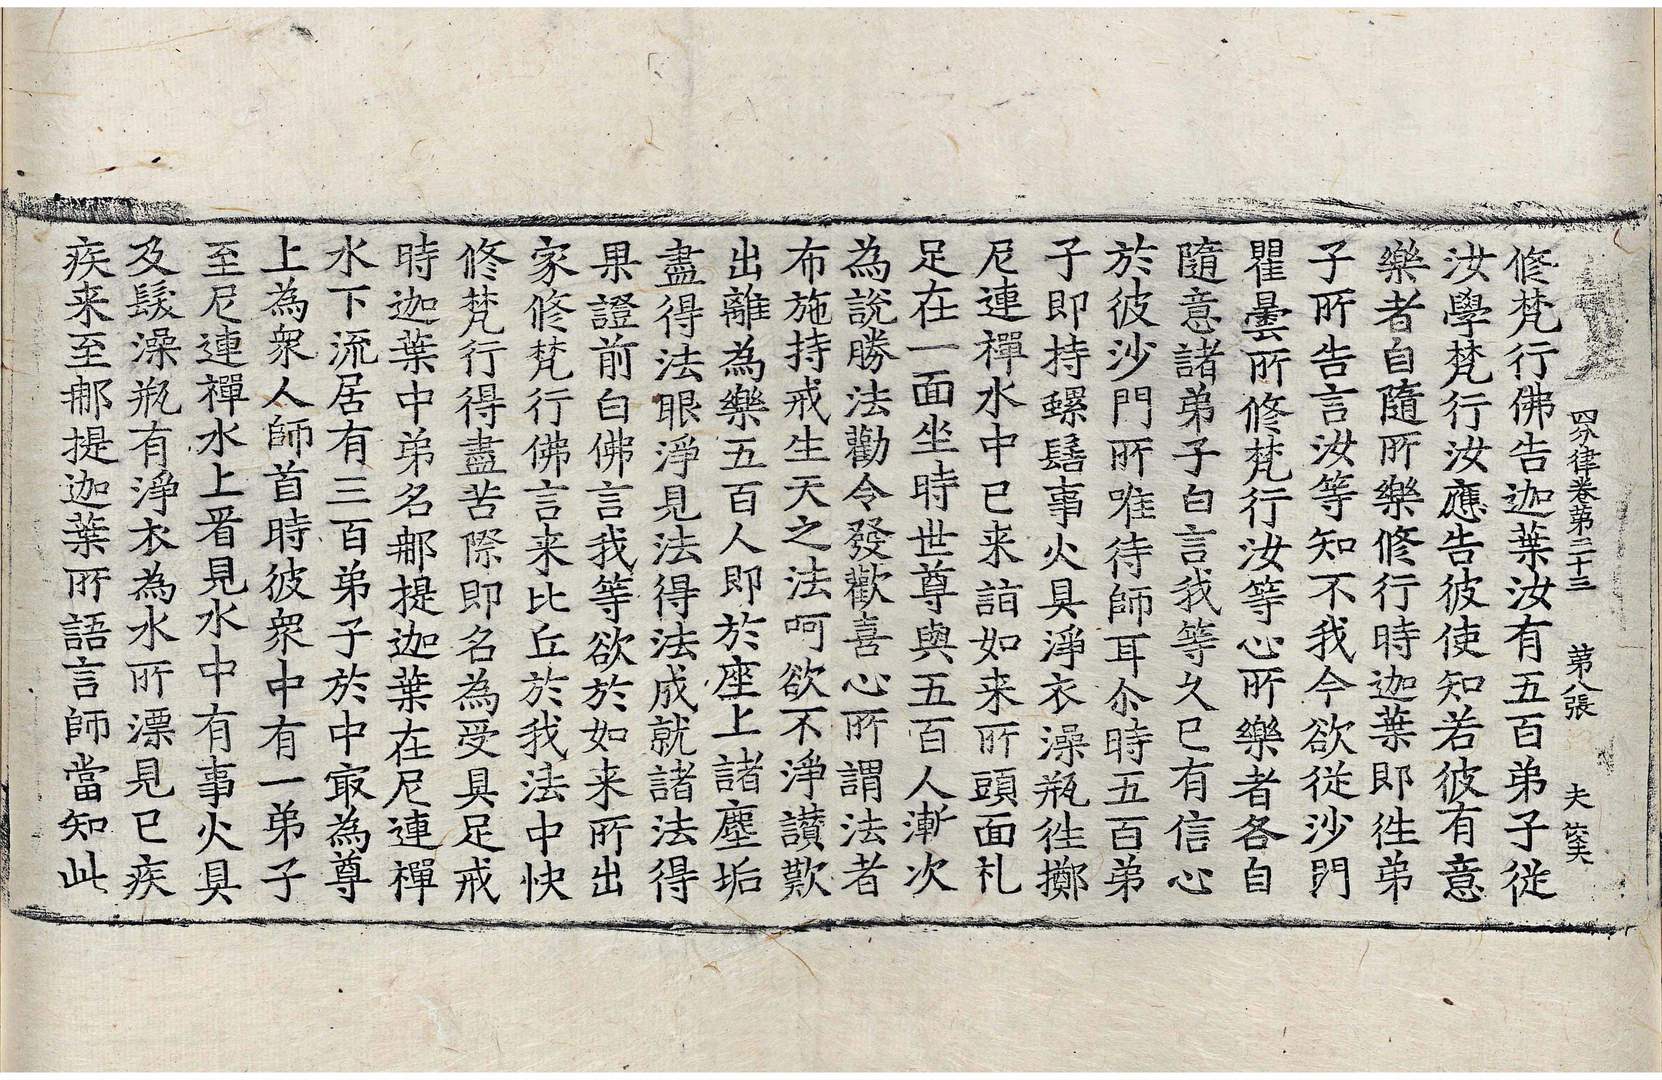 四分律卷第三十三 第八張 夫
修梵行佛告迦葉汝有五百弟子從
汝學梵行汝應告彼使知若彼有意
樂者自隨所樂修行時迦葉即往弟
子所告言汝等知不我今欲從沙門
瞿曇所修梵行汝等心所樂者各自
隨意諸弟子白言我等久已有信心
於彼沙門所唯待師耳尒時五百弟
子即持螺髻事火具淨衣澡瓶往擲
尼連禪水中已来詣如来所頭面礼
足在一面坐時世尊與五百人漸次
為說勝法勸令發歡喜心所謂法者
布施持戒生天之法呵欲不淨讃歎
出離為樂五百人即於座上諸塵垢
盡得法眼淨見法得法成就諸法得
果證前白佛言我等欲於如来所出
家修梵行佛言来比丘於我法中快
修梵行得盡苦際即名為受具足戒
時迦葉中弟名那提迦葉在尼連禪
水下流居有三百弟子於中㝡為尊
上為衆人師首時彼衆中有一弟子
至尼連禪水上看見水中有事火具
及髮澡瓶有淨衣為水所漂見已疾
疾来至那提迦葉所語言師當知此